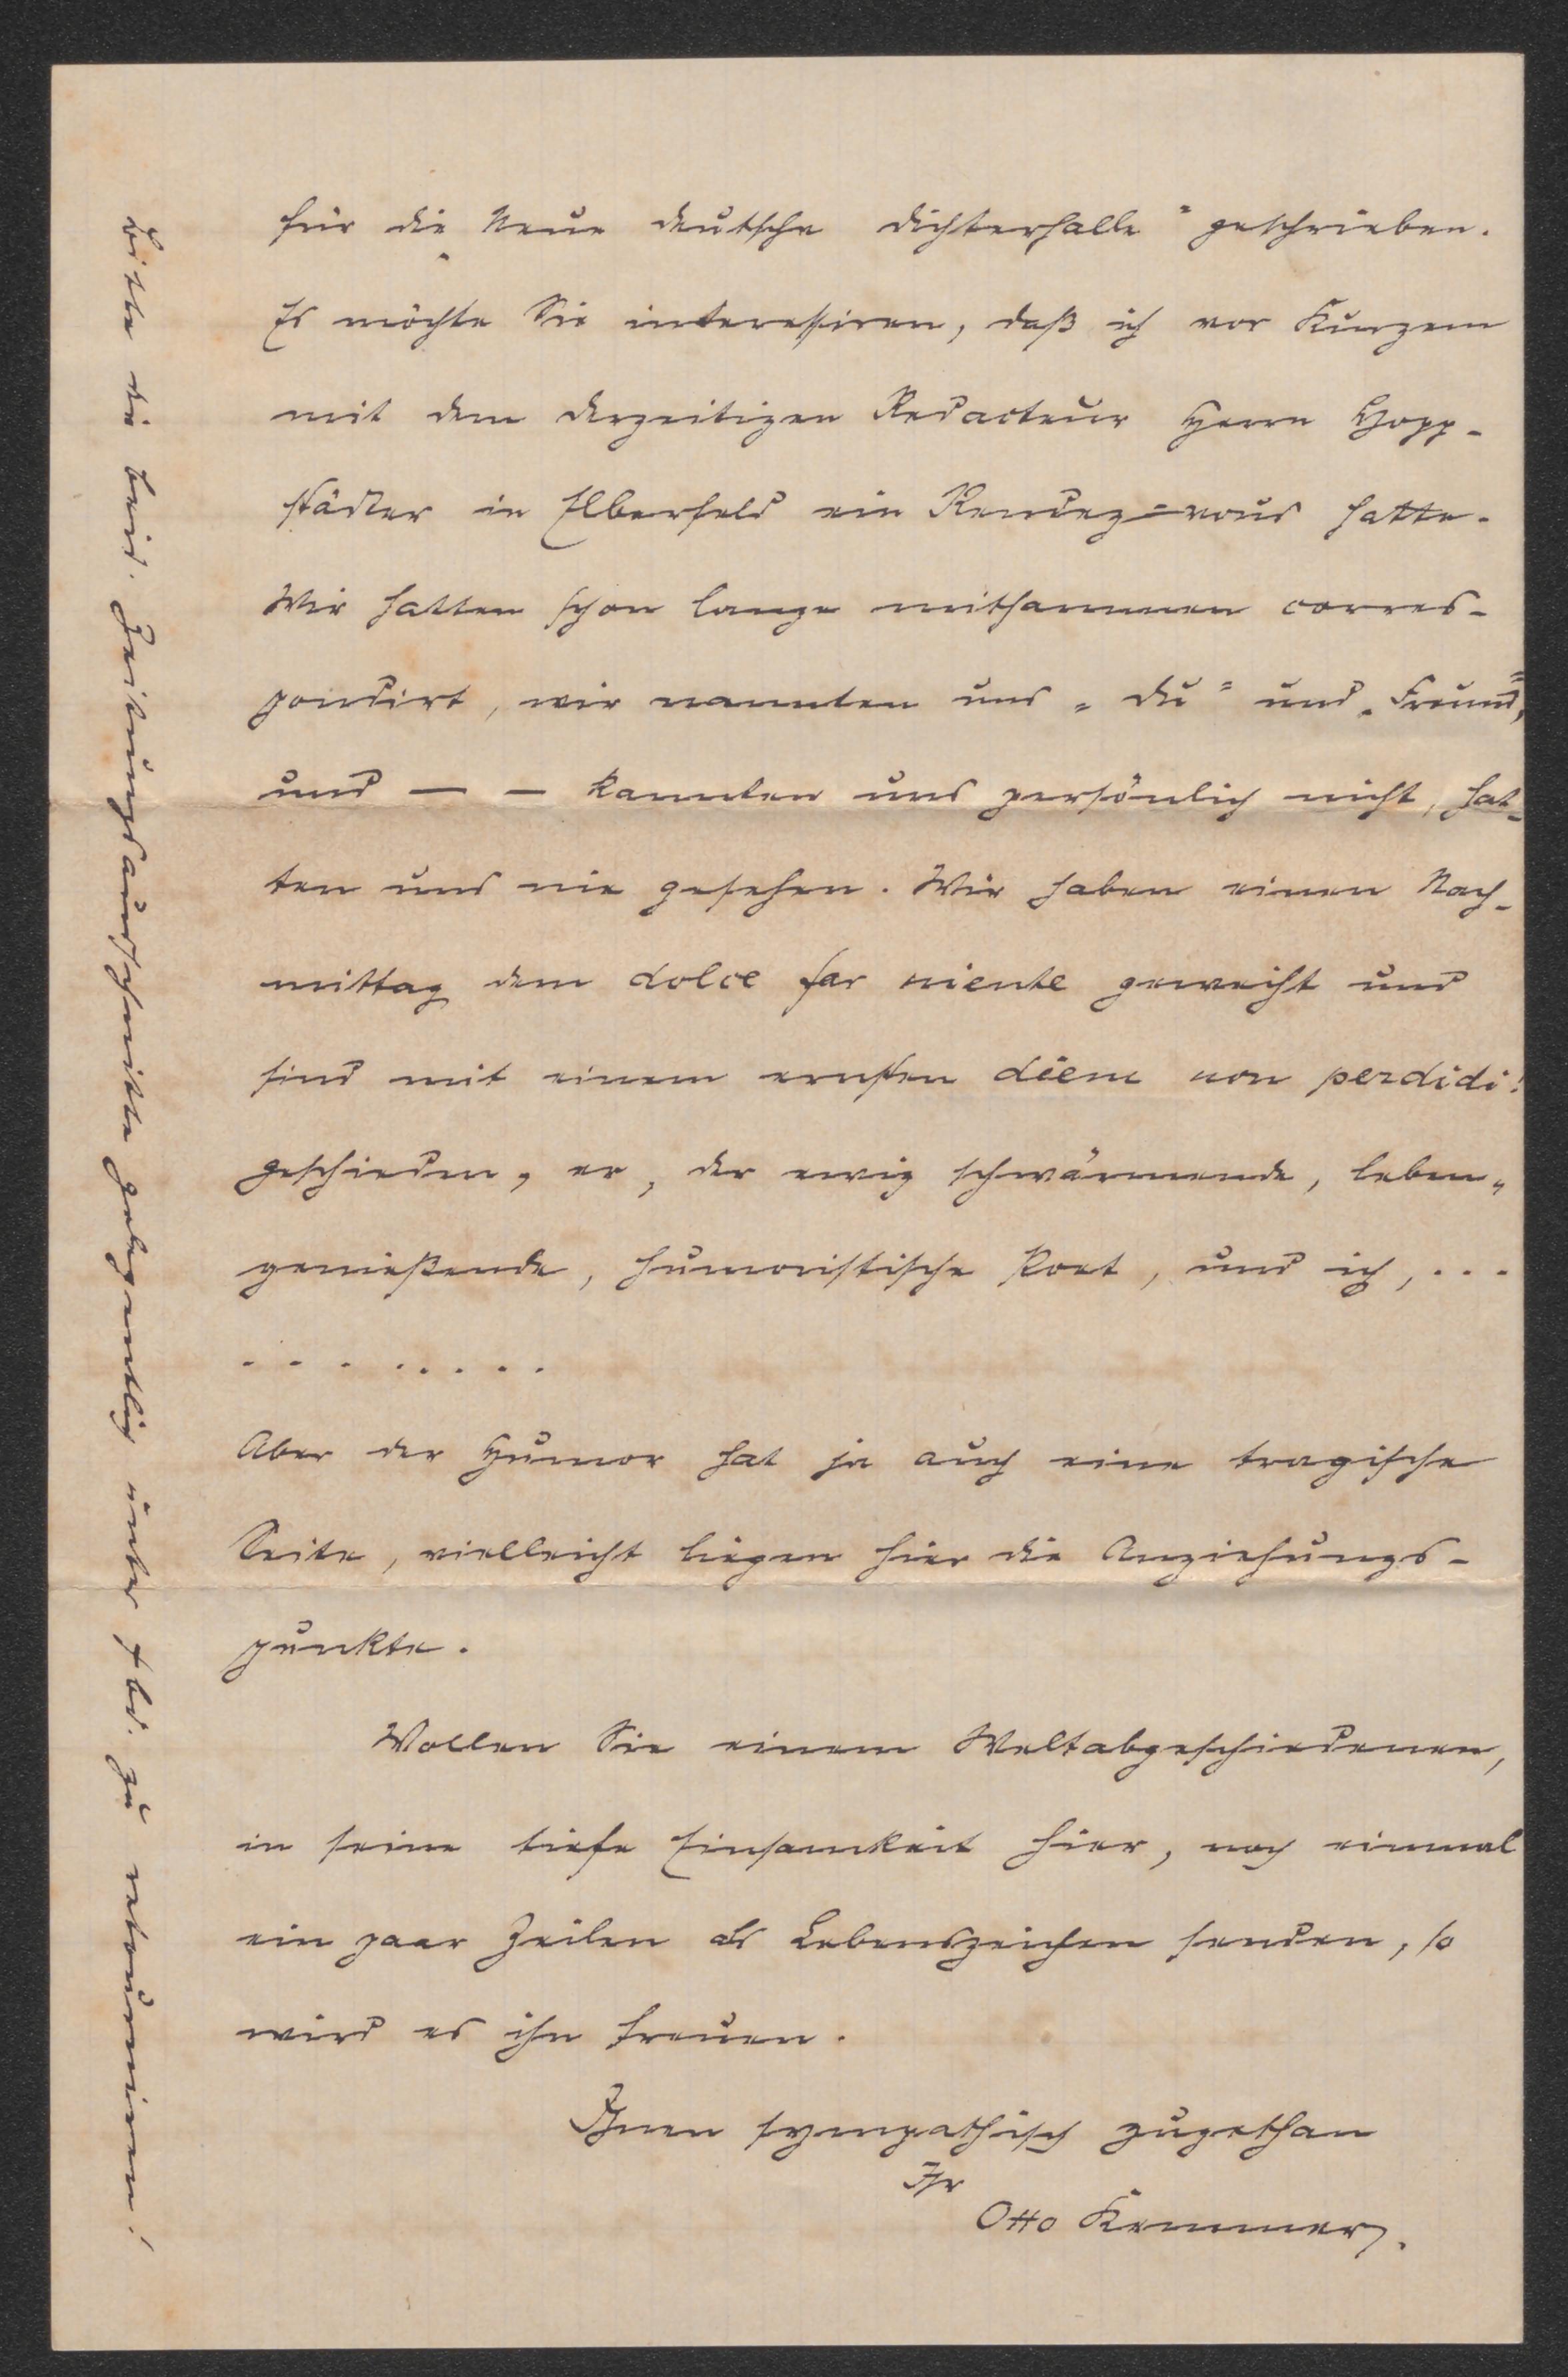 für die „Neue deutsche Dichterhalle" geschrieben.
Es möchte Sie interessiren, daß ich vor Kurzem
mit dem derzeitigen Redacteur Herrn Hopp-
städter in Elberfeld ein Rendez=vous hatte.
Wir hatten schon lange mitsammen corres-
pondirt, wir nannten uns „Du" und „Freund",
und — — kannten uns persönlich nicht, hat-
ten uns nie gesehen. Wir haben einen Nach-
mittag dem dolce far niente geweiht und
sind mit einem ernsten diem non perdidi!
geschieden, er, der ewig schwärmende, leben-
genießende, humoristische Poet, und ich, ...
. . . . . . . .
Aber der Humor hat ja auch eine tragische
Seite, vielleicht liegen hier die Anziehungs-
punkte.
Wollen Sie einem Weltabgeschiedenen,
in seine tiefe Einsamkeit hier, noch einmal
ein paar Zeilen als Lebenszeichen senden, so
wird es ihn freuen.
Ihnen sympathisch zugethan
Ihr
Otto Kemmer.
Bitte die beid. Zeitungsausschnitte gelegentlich unter +bd. zu retourniren!